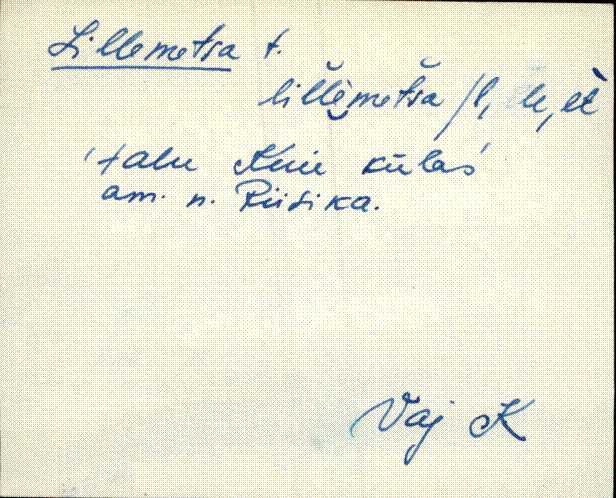 Lillemetsa t.
lillemetsa /l, le, et
'talu Kuie külas'
am. n. Riisika.
Vaj K